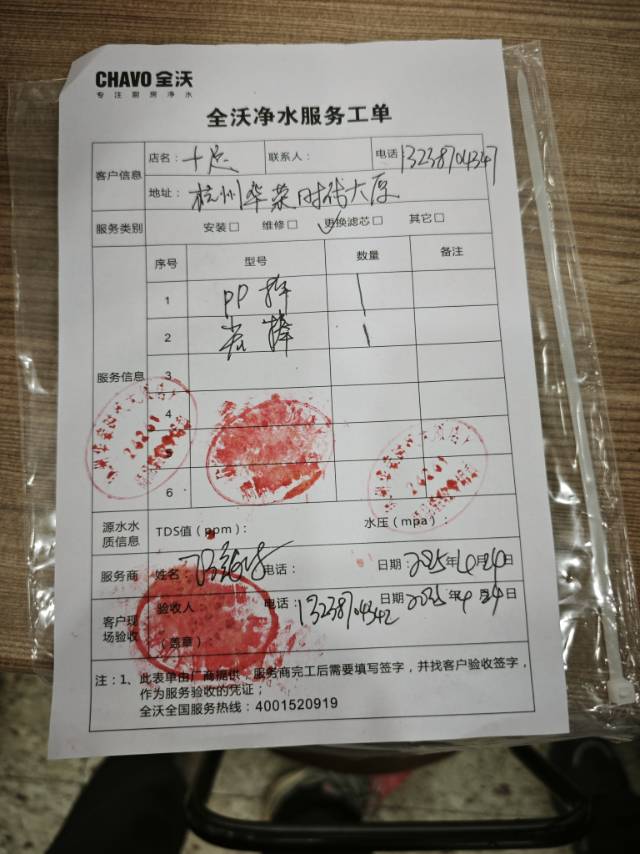 CHAVO 全沃
专注厨房净水
全沃净水服务工单
客户信息 店名：十足 联系人： 电话 13238704347
地址：杭州华荣时代大厦
服务类别 安装□ 维修□ 更换滤芯□ 其它□
服务信息
序号 型号 数量 备注
1 PP棒 1
2 炭棒 1
3
4
5
6
源水水质信息 TDS值（ppm）： 水压（mpa）：
服务商 姓名： 电话： 日期 2025年4月24日
客户现场验收 验收人： 电话：13238704342 日期 2025年4月24日
（盖章）
注：1、此表单由厂商提供，服务商完工后需要填写签字，并找客户验收签字，
作为服务验收的凭证；
全沃全国服务热线：4001520919